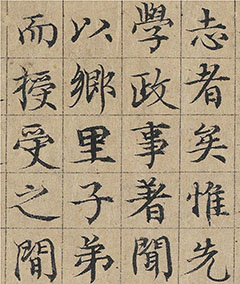 志者矣惟先
學政事著聞
以鄉里子弟
而授受之間